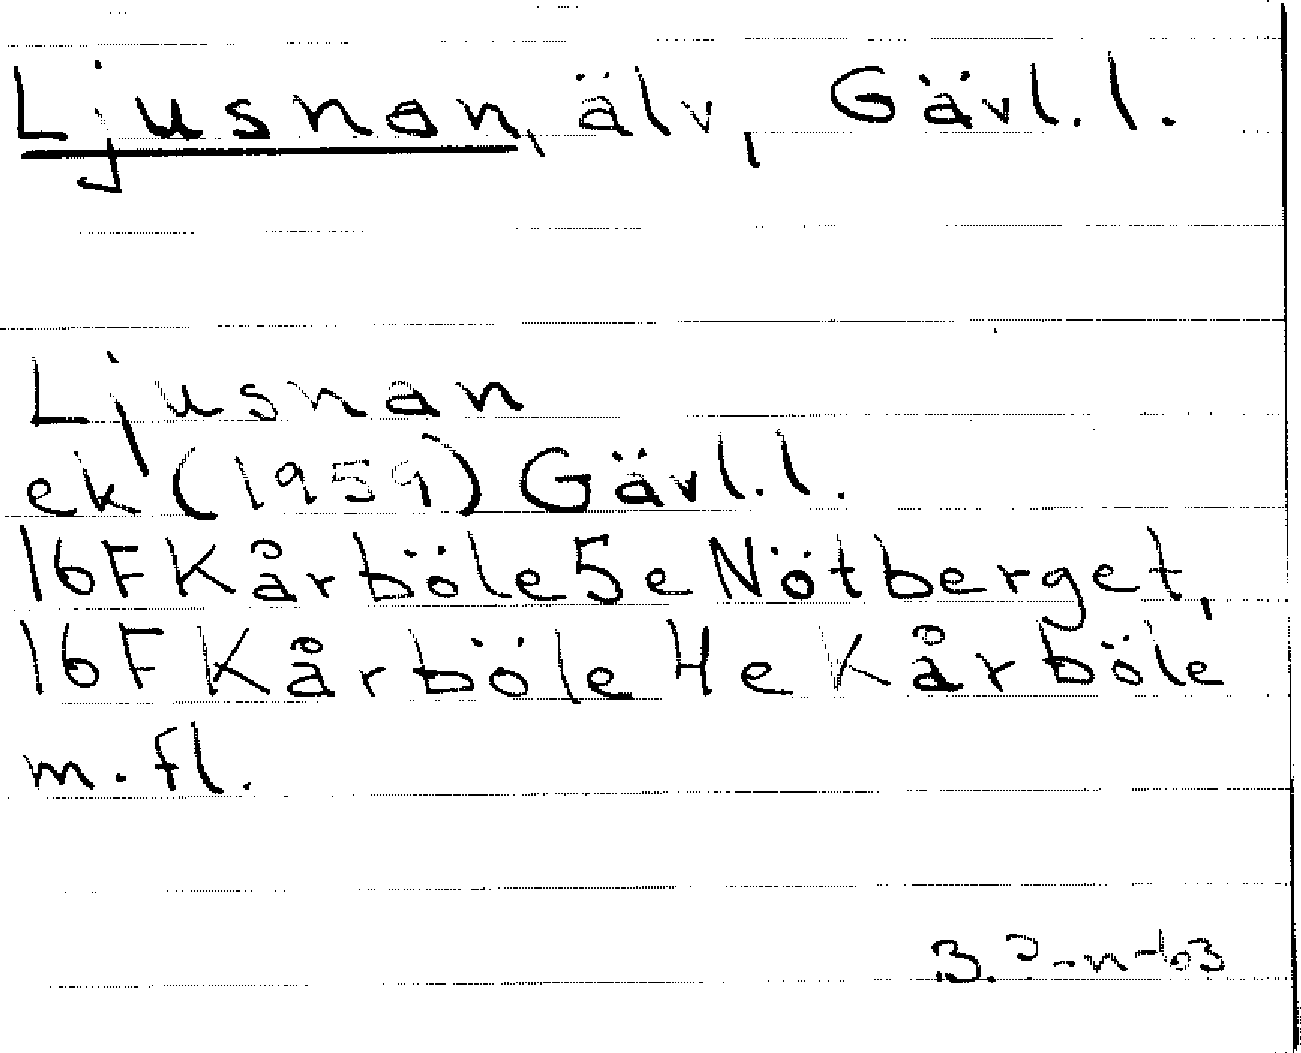 Ljusnan, älv, Gävl. l.
Ljusnan
ek (1959) Gävl. l.
16F Kårböle 5e Nötberget,
16F Kårböle 4e Kårböle
m. fl.